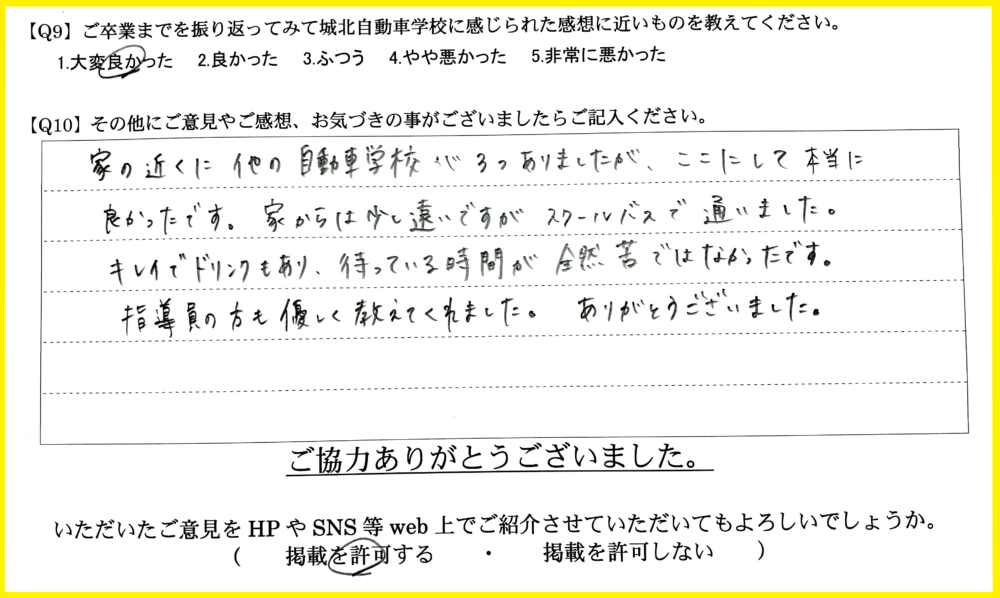 【Q9】ご卒業までを振り返ってみて城北自動車学校に感じられた感想に近いものを教えてください。
1.大変良かった 2.良かった 3.ふつう 4.やや悪かった 5.非常に悪かった
【Q10】その他にご意見やご感想、お気づきの事がございましたらご記入ください。
家の近くに他の自動車学校が3つありましたが、ここにして本当に
良かったです。家からは少し遠いですがスクールバスで通いました。
キレイでドリンクもあり、待っている時間が全然苦ではなかったです。
指導員の方も優しく教えてくれました。ありがとうございました。
ご協力ありがとうございました。
いただいたご意見をHPやSNS等web上でご紹介させていただいてもよろしいでしょうか。
( 掲載を許可する ・ 掲載を許可しない )